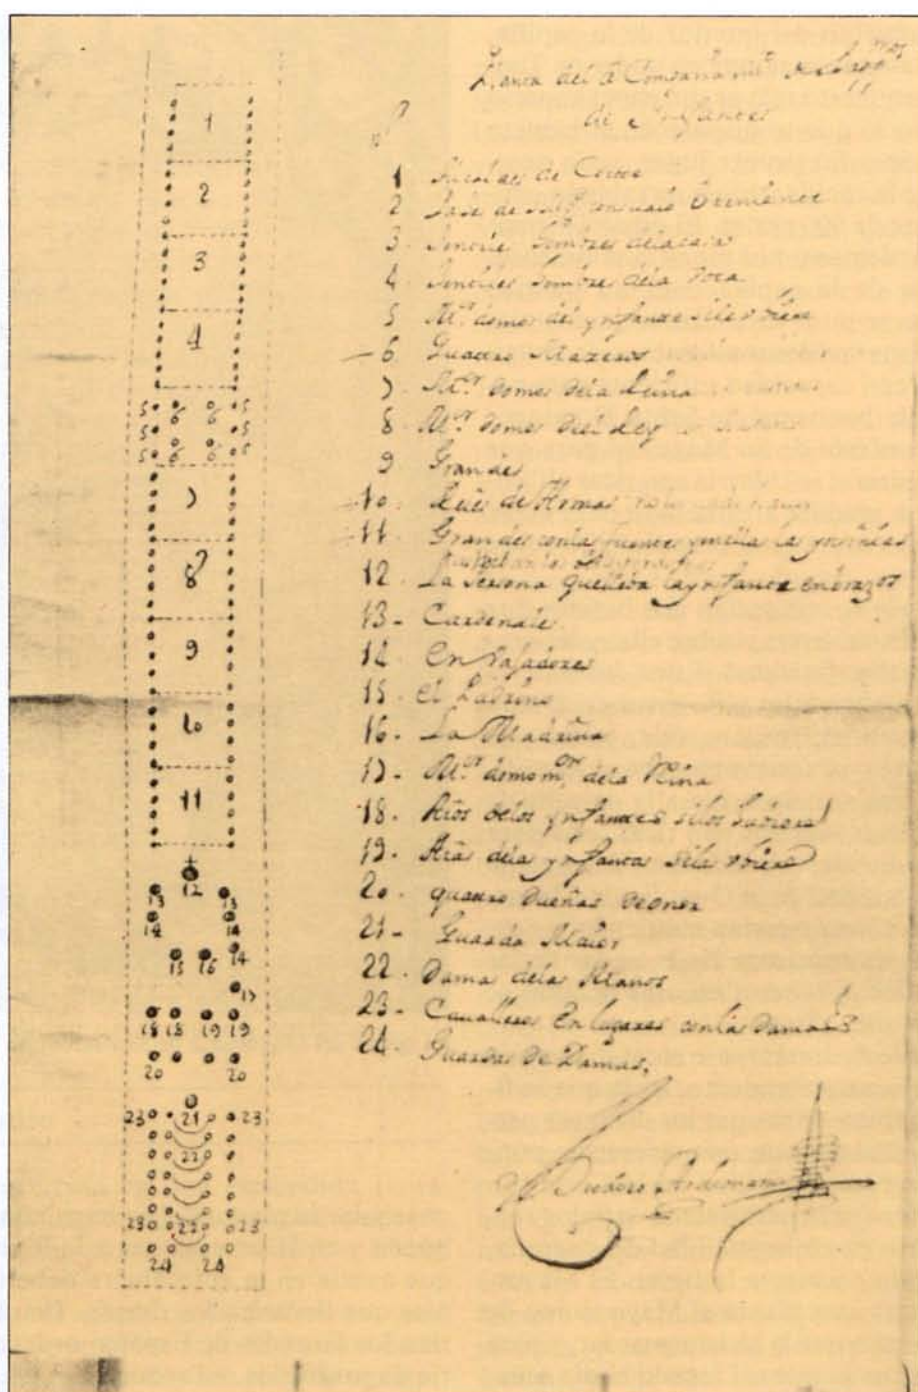 Planta del Acompañamto
de Infantes
1 Alcaldes de Corte
2
3 Gentiles hombres de la casa
4 Gentiles hombres de la voca
5 Mrdomos del ynfante si le
6 Quatro Mazeros
7 Mrdomos de la Reina
8 Mrdomos del Rey
9 Grandes
10 Reies de Armas
11 Grandes con la fuente
12 La Persona que lleva la ynfanta en brazos
13 - Cardenales
14 - Enbajadores
15 - El Padrino
16 - La Madrina
17 - Mr domo mor de la Rina
18 - Aios de los ynfantes si los hubiere
19 - Aia de la ynfanta si la ubiere
20 - quatro dueñas de onor
21 - Guarda Maior
22 - Damas de las Manos
23 - Cavalleros En lugares con las Damas
24 - Guardas de Damas.
Teodoro Ardemans
1
2
3
4
5 6 6 5
5 5
5 6 6 5
7
8
9
10
11
12
13 13
14 14
15 16 14
17
18 18 19 19
20 20
23 21 23
22
23 22 23
24 24